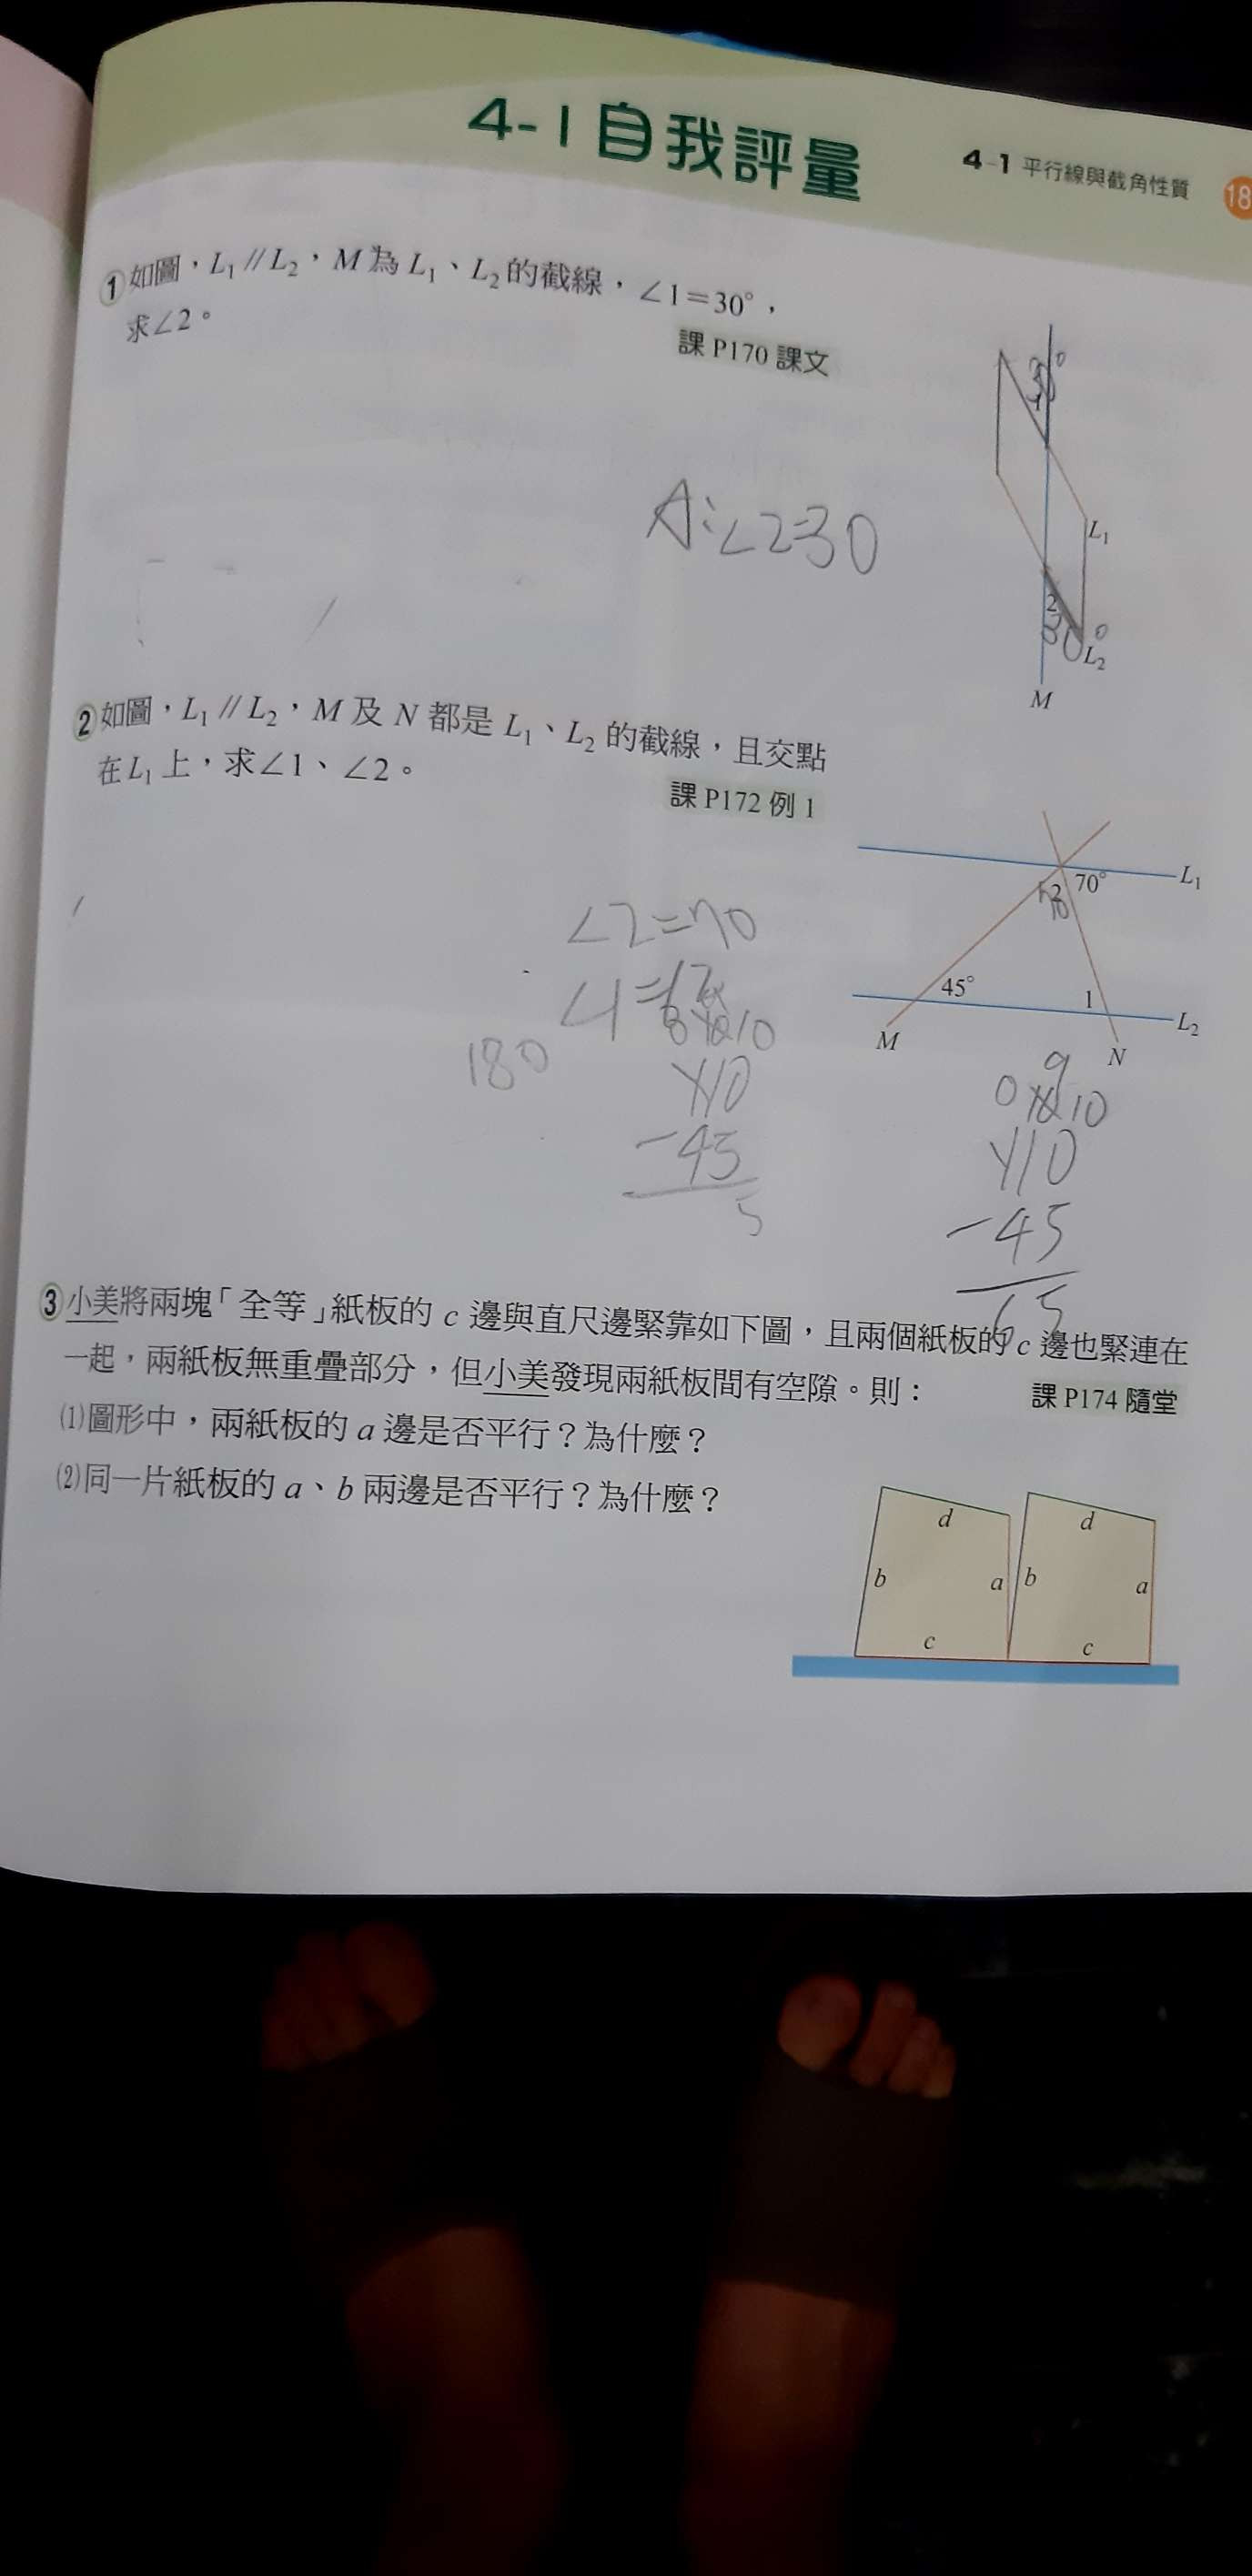 4-1 自我評量
4-1 平行線與截角性質
18
① 如圖，L₁∥L₂，M 為 L₁、L₂ 的截線，∠1＝30°，
求∠2。
課 P170 課文
1
A:∠2=30
L₁
2
30°
L₂
M
② 如圖，L₁∥L₂，M 及 N 都是 L₁、L₂ 的截線，且交點
在 L₁ 上，求∠1、∠2。
課 P172 例 1
L₁
2
70°
∠2=70
∠1=
45°
1
L₂
M
N
180
10
-45
5
10
-45
65
③ 小美將兩塊「全等」紙板的 c 邊與直尺邊緊靠如下圖，且兩個紙板的 c 邊也緊連在
一起，兩紙板無重疊部分，但小美發現兩紙板間有空隙。則：
課 P174 隨堂
⑴圖形中，兩紙板的 a 邊是否平行？為什麼？
⑵同一片紙板的 a、b 兩邊是否平行？為什麼？
d
d
b
a
b
a
c
c